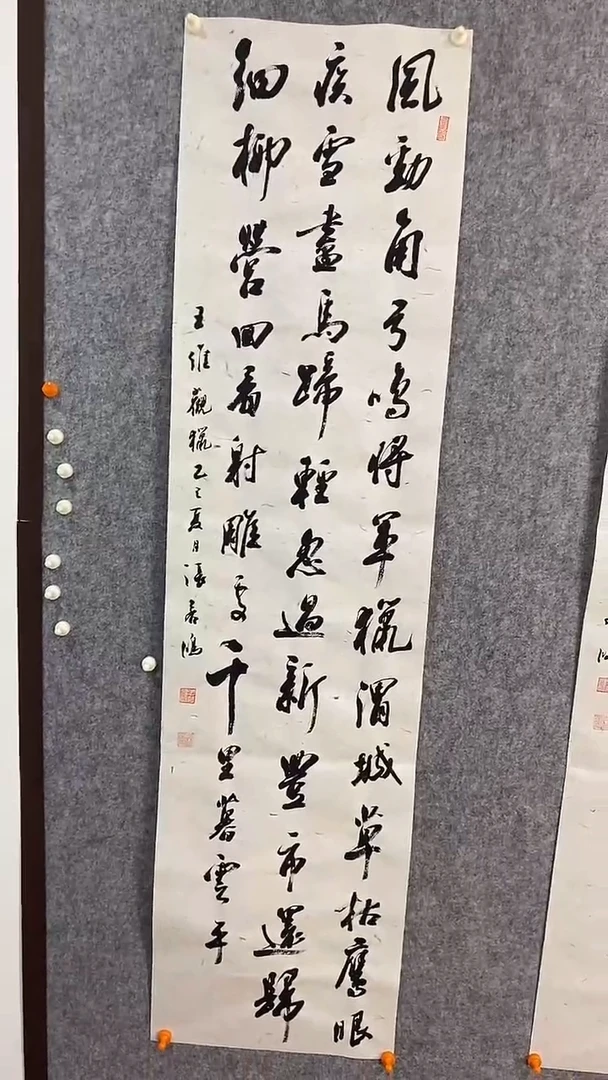 風勁角弓鳴將軍獵渭城草枯鷹眼
疾雪盡馬蹄輕忽過新豐市還歸
細柳營回看射雕處千里暮雲平
王維觀獵乙巳夏日張